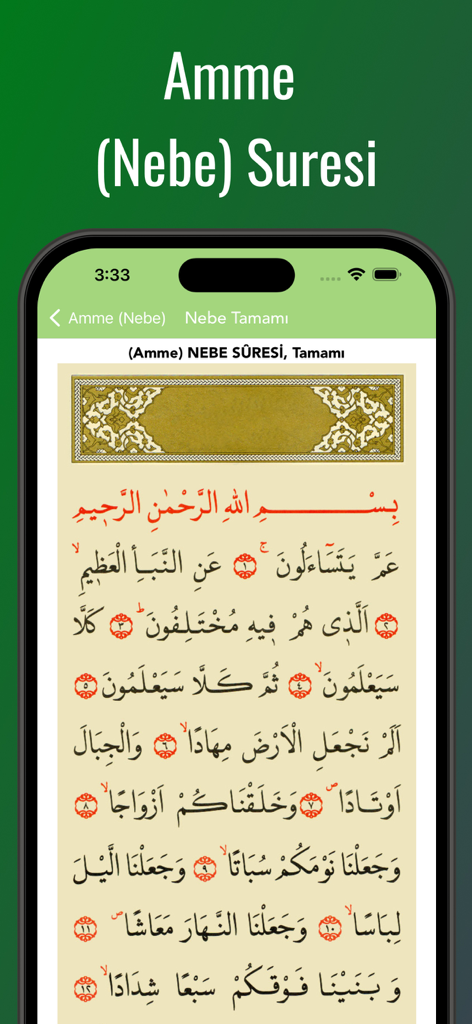 Amme
(Nebe) Suresi
3:33
Amme (Nebe) Nebe Tamamı
(Amme) NEBE SÛRESİ, Tamamı
بِسْمِ اللهِ الرَّحْمٰنِ الرَّحٖيمِ
عَمَّ يَتَسَٓاءَلُونَۚ ﴿١﴾ عَنِ النَّبَأِ الْعَظٖيمِۙ
﴿٢﴾ اَلَّذٖى هُمْ فٖيهِ مُخْتَلِفُونَۜ ﴿٣﴾ كَلَّا
سَيَعْلَمُونَۙ ﴿٤﴾ ثُمَّ كَلَّا سَيَعْلَمُونَ ﴿٥﴾
اَلَمْ نَجْعَلِ الْاَرْضَ مِهَادًاۙ ﴿٦﴾ وَالْجِبَالَ
اَوْتَادًاۖ ﴿٧﴾ وَخَلَقْنَاكُمْ اَزْوَاجًاۙ ﴿٨﴾
وَجَعَلْنَا نَوْمَكُمْ سُبَاتًاۙ ﴿٩﴾ وَجَعَلْنَا الَّيْلَ
لِبَاسًاۙ ﴿١٠﴾ وَجَعَلْنَا النَّهَارَ مَعَاشًاۖ ﴿١١﴾
وَبَنَيْنَا فَوْقَكُمْ سَبْعًا شِدَادًاۙ ﴿١٢﴾